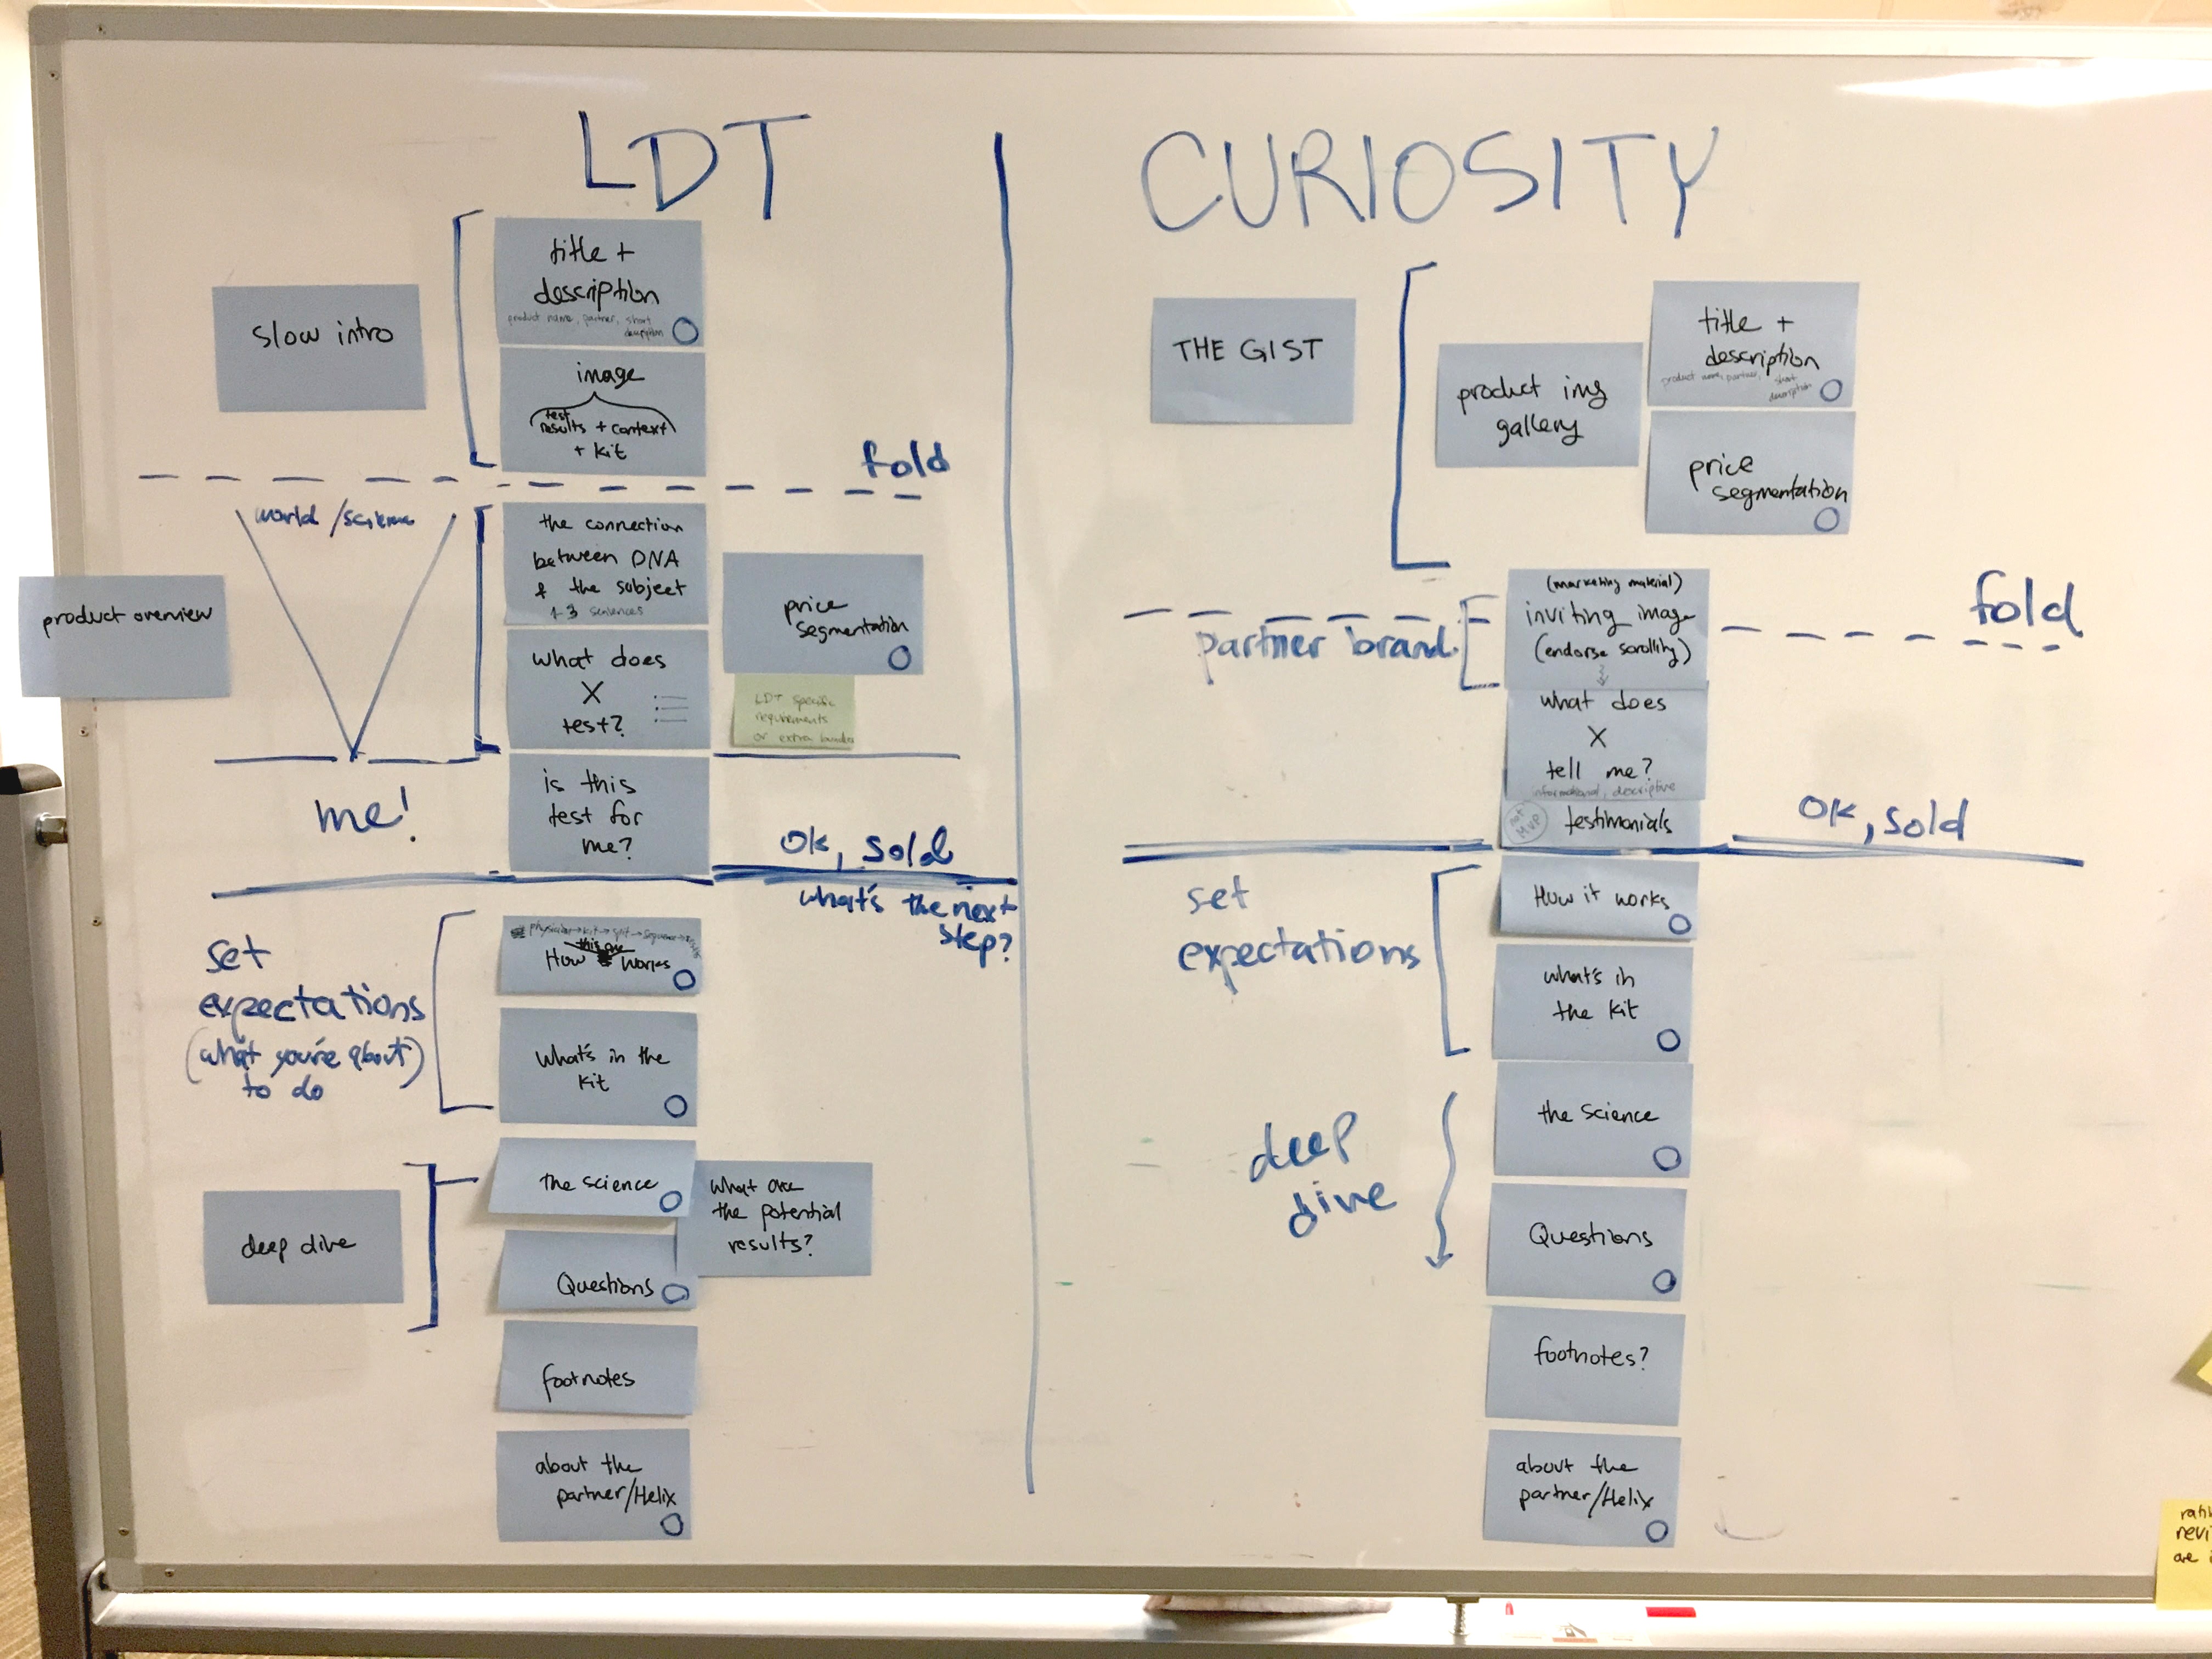 LDT
slow intro
title +
description
product name, partner, short
description
image
test
results + context
+ kit
fold
world/science
product overview
the connection
between DNA
& the subject
1-3 sentences
what does
X
test?
price
segmentation
LDT specific
requirements
or extra
me!
is this
test for
me?
OK, sold
what's the next
step?
set
expectations
(what you're about)
to do
physician → kit → spit → sequence →
this one
How works
what's in the
kit
deep dive
the science
what are
the potential
results?
Questions
footnotes
about the
partner/Helix
CURIOSITY
THE GIST
product img
gallery
title +
description
product name, partner,
short
description
price
segmentation
fold
partner brand
(marketing material)
inviting image
(endorse scrolling)
what does
X
tell me?
informational, descriptive
not
MVP
testimonials
OK, sold
set
expectations
How it works
what's in
the kit
deep
dive
the science
Questions
footnotes?
about the
partner/Helix
are